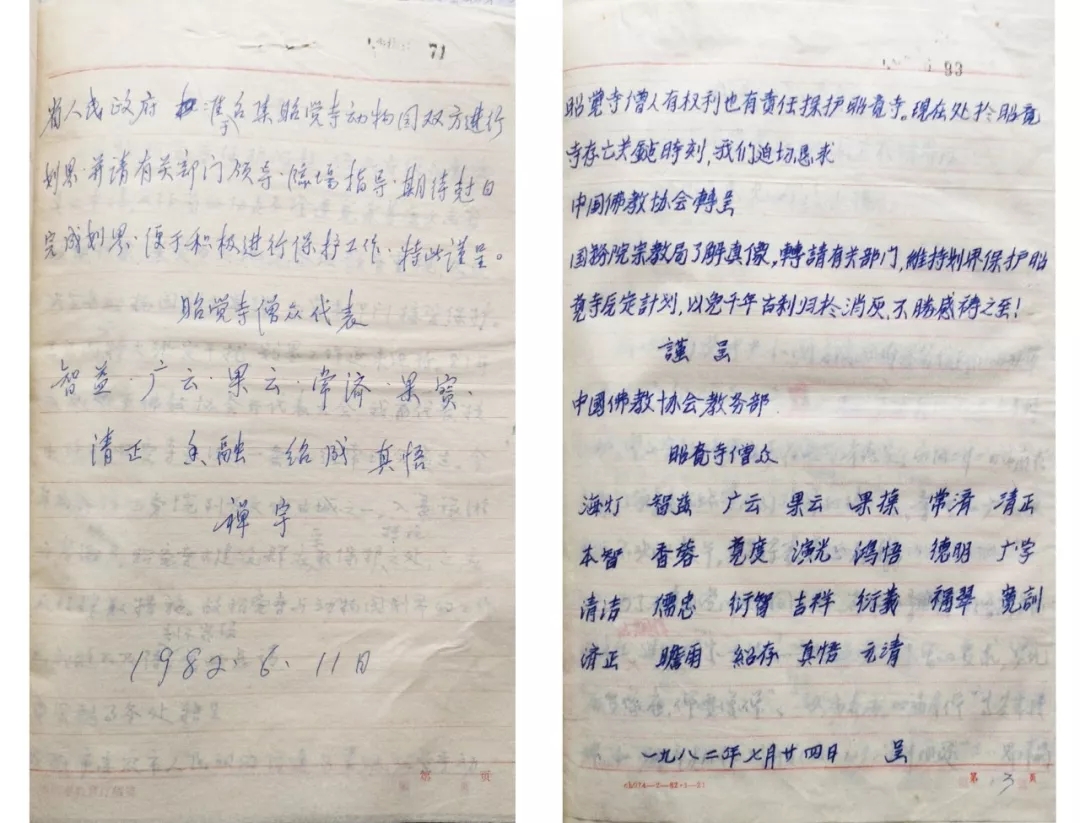 71
省人民政府 批准于召集昭觉寺动物园双方进行
划界·并请有关部门领导·临场指导·期待赶日
完成划界·便于积极进行保护工作·特此谨呈。
昭觉寺僧众代表
智益·广云·果云·常济·果宾·
清正 融 绍成 真悟
禅宇
1982.6.11日
第 页
93
昭覺寺僧人有权利也有責任保护昭覺寺。現在处於昭覺
寺存亡关鍵時刻，我们迫切恳求
中国佛教协会轉呈
国務院宗教局了解真像，轉請有关部门，維持划界保护昭
覺寺原定計划，以免千年古刹归於消灰，不勝感祷之至！
謹呈
中國佛教协会教务部
昭覺寺僧众
海灯 智益 广云 果云 果操 常济 清正
本智 香蓉 寬度 演光 鸿悟 德明 广字
清洁 儒忠 衍智 吉祥 衍義 福翠 寬訓
济正 瞻雨 紹存 真悟 玄清
一九八二年七月廿四日 呈
第 3 页